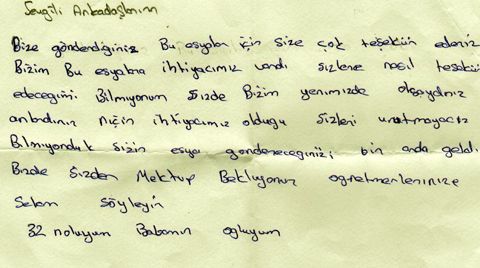 Sevgili Arkadaşlarım
Bize gönderdiğiniz Bu eşyaları için size çok teşekkür ederiz
Bizim Bu eşyalara ihtiyacımız vardı sizlere nasıl teşekkür
edeceğimi Bilmiyorum Sizde Bizim yerimizde olsaydınız
anlardınız niçin ihtiyacımız olduğu sizleri unutmayacız
Bilmiyorduk sizin eşya göndereceğinizi bir anda geldi
Bizde Sizden Mektup Bekliyoruz ogretmenlerinize
Selam söyleyin
32 noluyum Babamın ogluyum